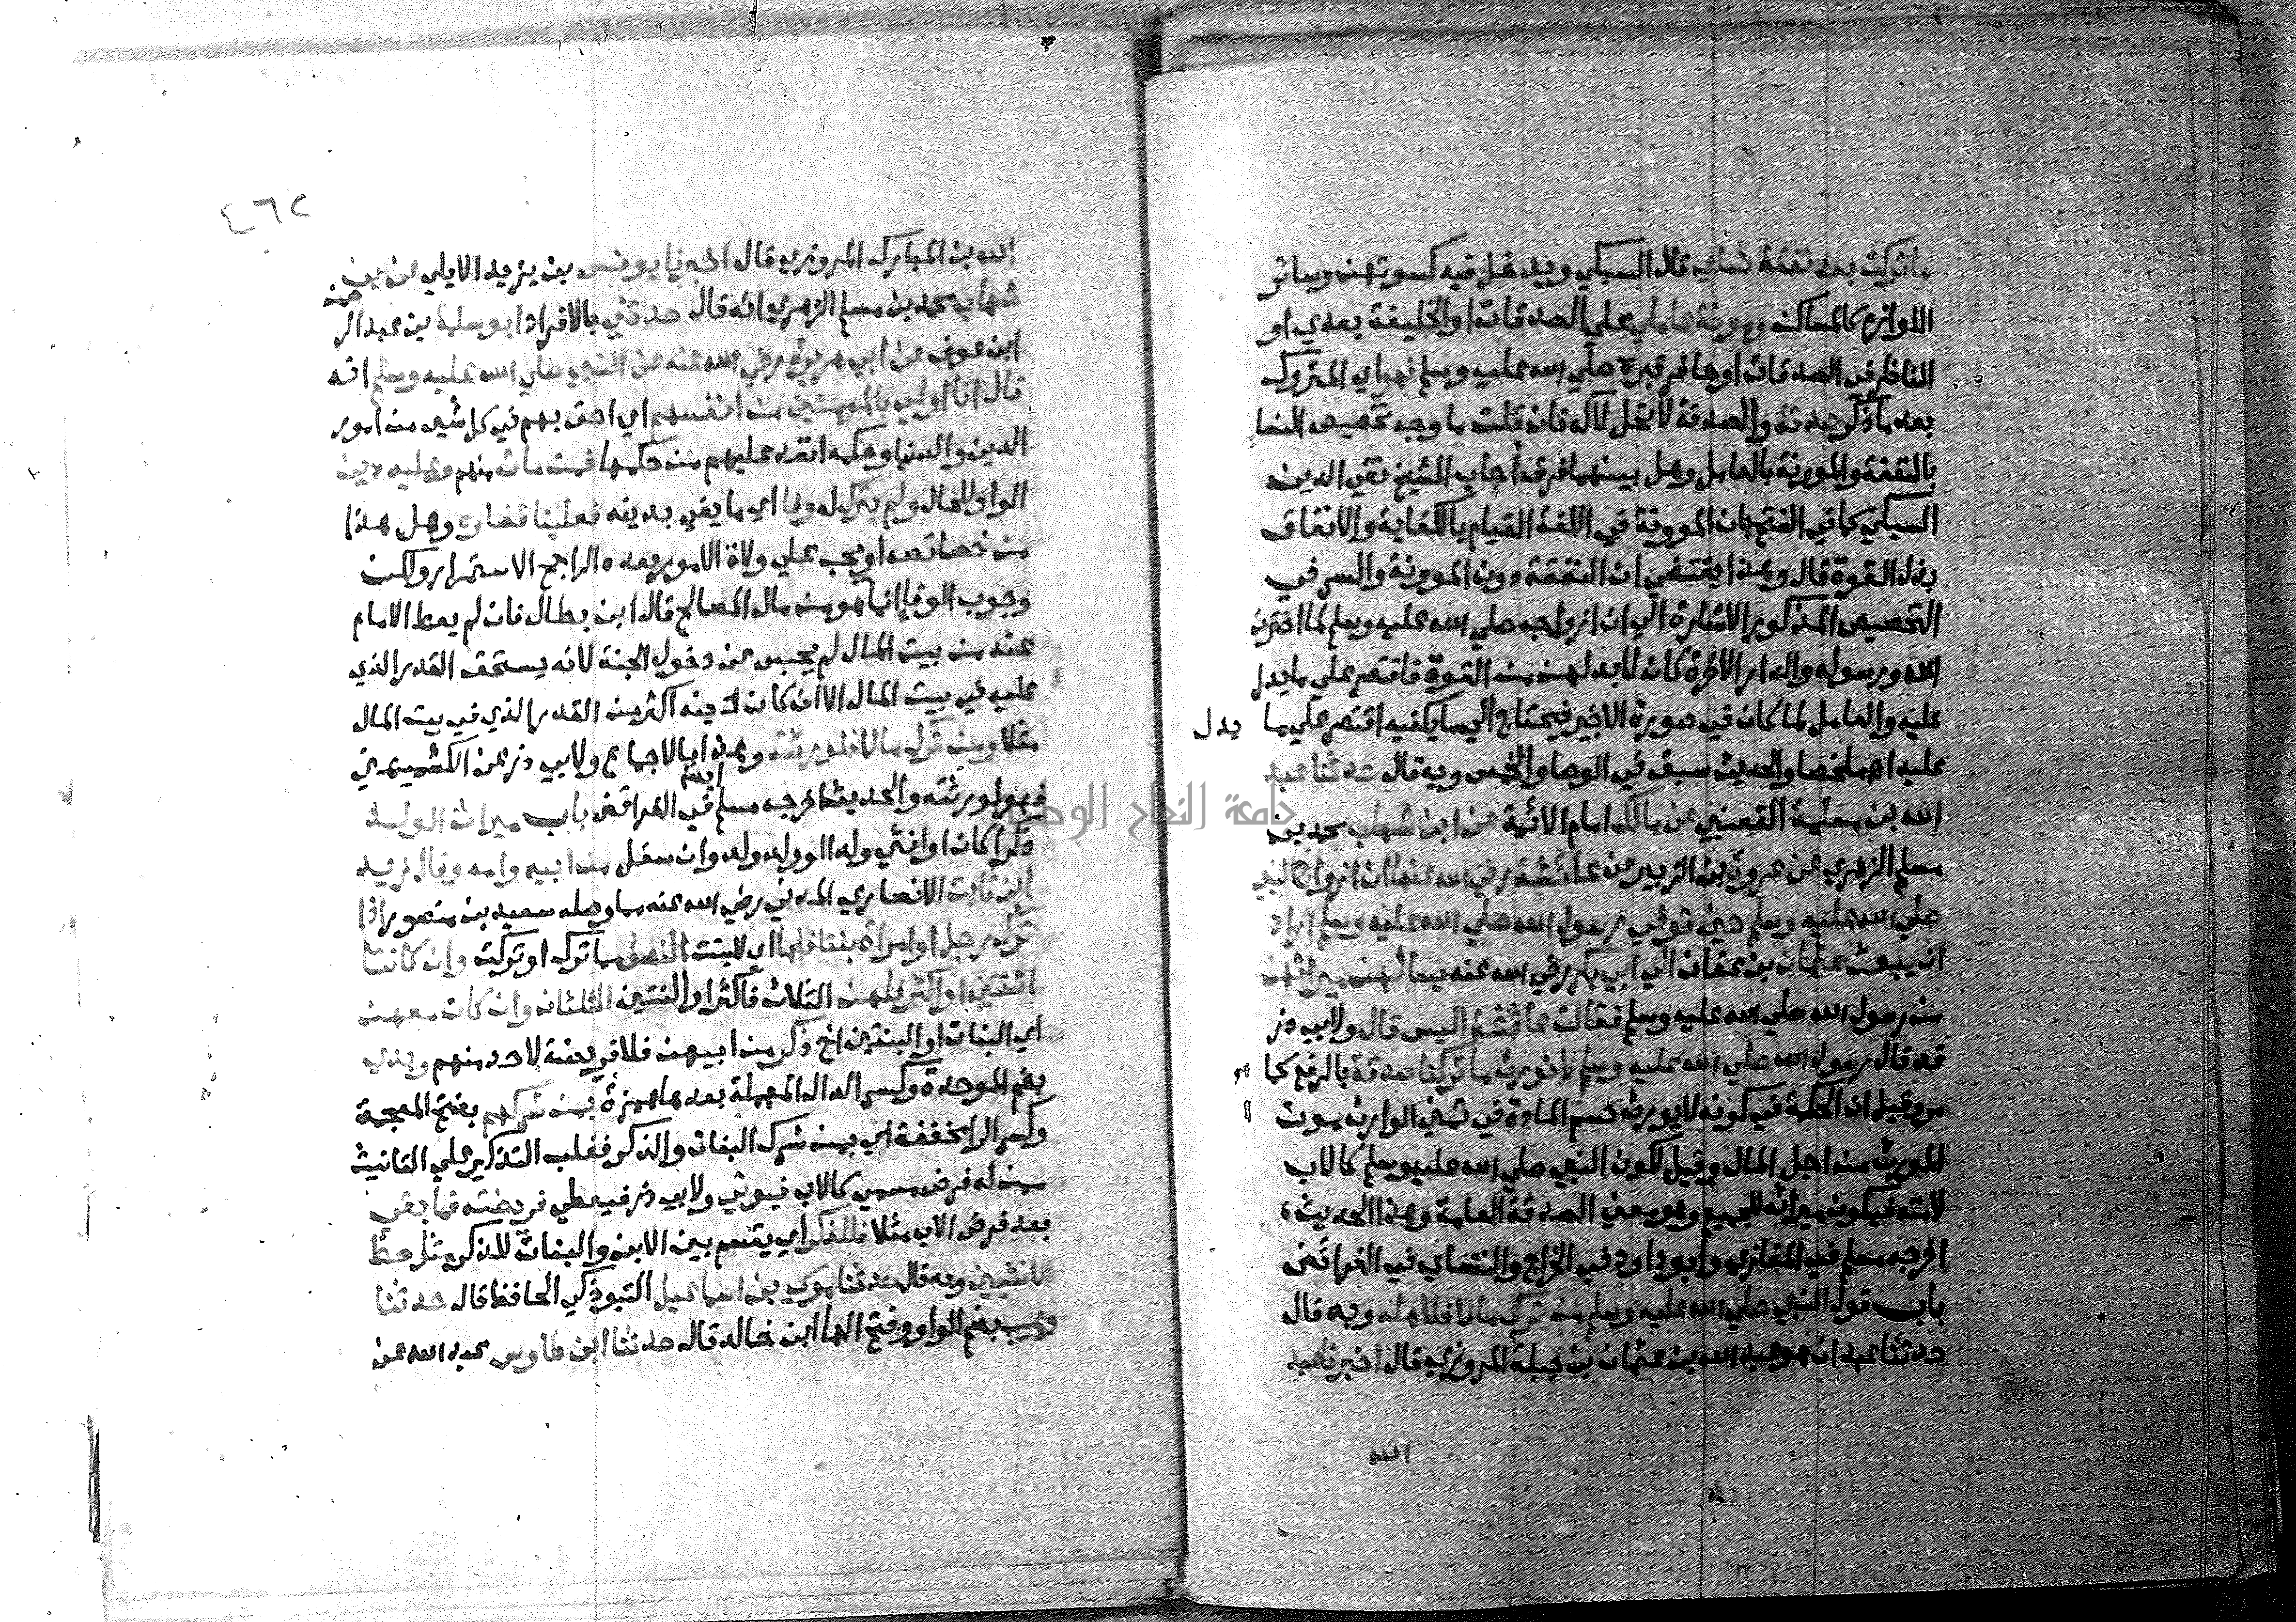 ما تركت بعد نفقة نسائي قال السبكي ويدخل فيه كسوتهن وسائر
اللوازم كالمساكن ومونة عاملي على الصدقات او الخليفة بعدي او
الناظر في الصدقات او حافر قبره صلي الله عليه وسلم فهو اي المتروك
بعد ما ذكر صدقة والصدقة لا تحل لآله فان قلت ما وجه تخصيص النسا
بالنفقة والمونة بالعامل وهل بينهما فرق اجاب الشيخ تقي الدين
السبكي كما في الفتح بان المونة في اللغة القيام بالكفاية والانفاق
بذل القوة قال وهذا يقتضي ان النفقة دون المونة والسر في
التخصيص المذكور الاشارة الي ان ازواجه صلي الله عليه وسلم لما اخترن
الله ورسوله والدار الاخرة كان لابد لهن من القوة فاقتصر علي ما يدل
عليه والعامل لما كان في صورة الاجير فيحتاج الي ما يكفيه اقتصر علي ما يدل
عليه اه ملخصا والحديث سبق في الوصايا والخمس وبه قال حدثنا عبد
الله بن مسلمة القعنبي عن مالك امام الائمة عن ابن شهاب محمد بن
مسلم الزهري عن عروة بن الزبير عن عائشة رضي الله عنها ان ازواج النبي
صلي الله عليه وسلم حين توفي رسول الله صلي الله عليه وسلم اراد
ان يبعث عثمان بن عفان الي ابي بكر رضي الله عنه يسالهن ميراثهن
من رسول الله صلي الله عليه وسلم فقالت عائشة اليس قال ولابي ذر
قد قال رسول الله صلي الله عليه وسلم لا نورث ما تركنا صدقة بالرفع كما
مر وقيل ان الحكمة في كونه لا يورث حسم المادة في تمني الوارث موت
المورث من اجل المال وقيل لكون النبي صلي الله عليه وسلم كالاب
لامته فيكون ميراثه للجميع وهو معني الصدقة العامة وهذا الحديث
اخرجه مسلم في المغازي وابو داود في الخراج والنسائي في الفرائض
باب قول النبي صلي الله عليه وسلم من ترك مالا فلاهله وبه قال
حدثنا عبدان هو عبد الله بن عثمان بن جبلة المروزي قال اخبرنا عبد
الله
٤٦٢
الله بن المبارك المروزي قال اخبرنا يونس بن يزيد الايلي عن بن
شهاب محمد بن مسلم الزهري انه قال حدثني بالافراد ابو سلمة بن عبد الرحمن
ابن عوف عن ابي هريرة رضي الله عنه عن النبي صلي الله عليه وسلم انه
قال انا اولي بالمومنين من انفسهم اي احق بهم في كل شي من امور
الدين والدنيا وحكمه انفذ عليهم من حكمها فمن مات منهم وعليه دين
الواو للحال ولم يترك له وفا اي ما يفي بدينه فعلينا قضاوه وهل هذا
من خصائصه او يجب علي ولاة الامور بعده والراجح الاستمرار ولكن
وجوب الوفا انما هو من مال المصالح قال ابن بطال فان لم يعط الامام
عنه من بيت المال لم يحبس عن دخول الجنة لانه يستحق القدر الذي
عليه في بيت المال الا ان كان دينه اكثر من القدر الذي في بيت المال
مثلا ومن ترك مالا فلورثته وهذا بالاجماع ولابي ذر عن الكشميهني
فهو لورثته والحديث اخرجه مسلم ايضا في الفرائض باب ميراث الولد
ذكرا كان او انثي ولد او ولد ولد وان سفل من ابيه وامه وقال زيد
ابن ثابت الانصاري المدني رضي الله عنه مما وصله سعيد بن منصور اذا
ترك رجل او امراة بنتا فلها اي للبنت النصف مما ترك او تركت وان كانتا
اثنتين او اكثر فلهن الثلاث فاكثر او البنتين الثلثان وان كان معهن
اي البنات او البنتين اخ ذكر من ابيهن فلا فريضة لاحد منهم وبدي
بضم الموحدة وكسر الدال المهملة بعدها همزة بمن شركهم بفتح المعجمة
وكسر الرا مخففة اي بمن شرك البنات والذكر فغلب التذكير علي التانيث
ممن له فرض مسمي كالاب فيوتي ولابي ذر فيعطي فريضته فما بقي
بعد فرض الاب مثلا فللذكر اي يقسم بين الابن والبنات للذكر مثل حظ
الانثيين وبه قال حدثنا موسي بن اسماعيل التبوذكي الحافظ قال حدثنا
وهيب بضم الواو وفتح الها ابن خالد قال حدثنا ابن طاوس عبد الله عن
جامعة النجاح الوطنية